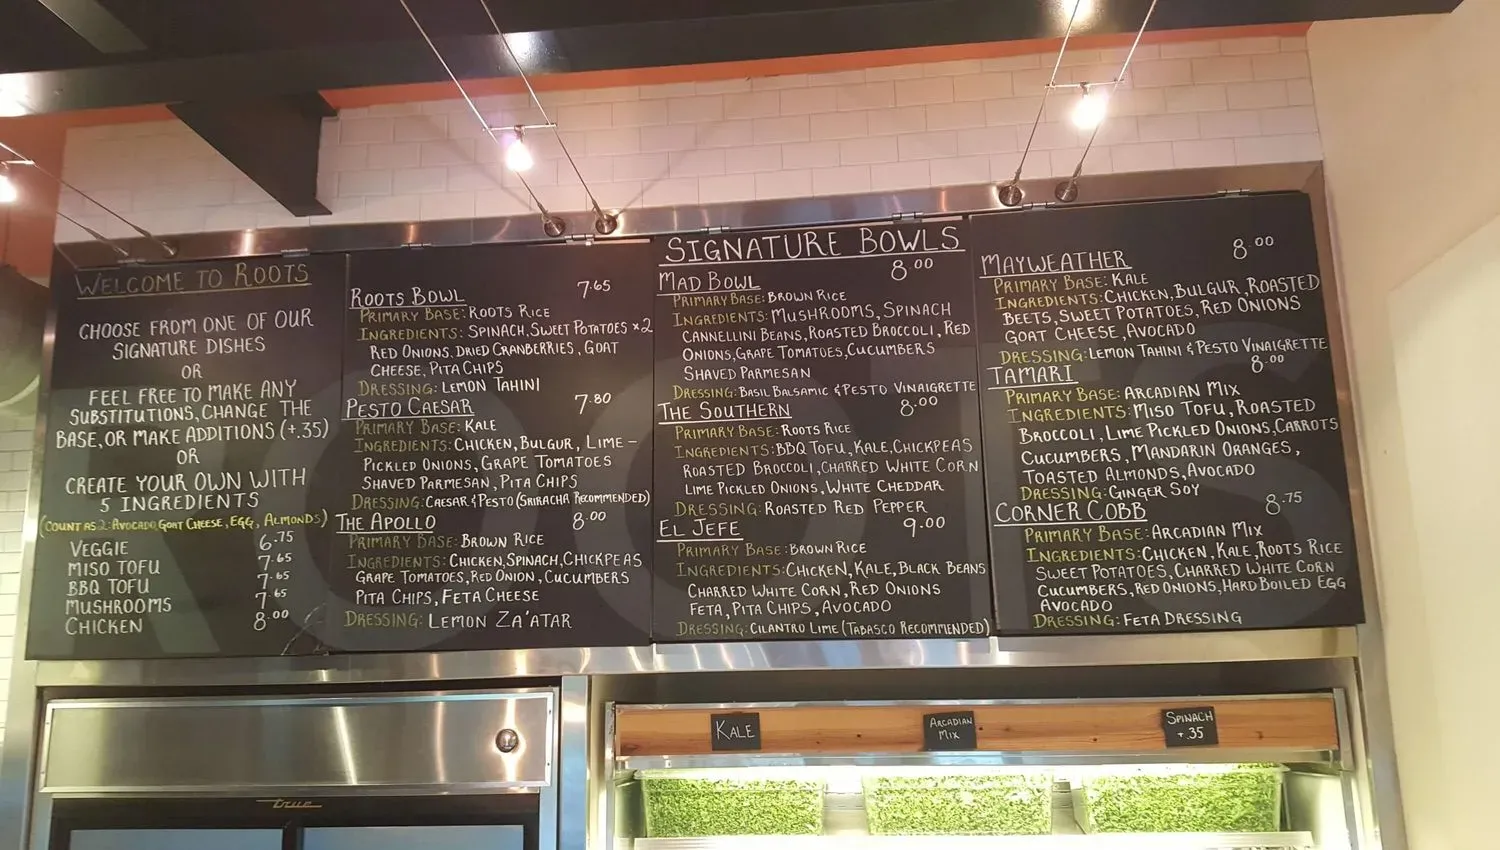 WELCOME TO ROOTS
CHOOSE FROM ONE OF OUR
SIGNATURE DISHES
OR
FEEL FREE TO MAKE ANY
SUBSTITUTIONS, CHANGE THE
BASE, OR MAKE ADDITIONS (+.35)
OR
CREATE YOUR OWN WITH
5 INGREDIENTS
(COUNT AS 2: AVOCADO, GOAT CHEESE, EGG, ALMONDS)
VEGGIE 6.75
MISO TOFU 7.65
BBQ TOFU 7.65
MUSHROOMS 7.65
CHICKEN 8.00
ROOTS BOWL 7.65
PRIMARY BASE: ROOTS RICE
INGREDIENTS: SPINACH, SWEET POTATOES x2
RED ONIONS, DRIED CRANBERRIES, GOAT
CHEESE, PITA CHIPS
DRESSING: LEMON TAHINI
PESTO CAESAR 7.80
PRIMARY BASE: KALE
INGREDIENTS: CHICKEN, BULGUR, LIME-
PICKLED ONIONS, GRAPE TOMATOES
SHAVED PARMESAN, PITA CHIPS
DRESSING: CAESAR & PESTO (SRIRACHA RECOMMENDED)
THE APOLLO 8.00
PRIMARY BASE: BROWN RICE
INGREDIENTS: CHICKEN, SPINACH, CHICKPEAS
GRAPE TOMATOES, RED ONION, CUCUMBERS
PITA CHIPS, FETA CHEESE
DRESSING: LEMON ZA'ATAR
SIGNATURE BOWLS
MAD BOWL 8.00
PRIMARY BASE: BROWN RICE
INGREDIENTS: MUSHROOMS, SPINACH
CANNELLINI BEANS, ROASTED BROCCOLI, RED
ONIONS, GRAPE TOMATOES, CUCUMBERS
SHAVED PARMESAN
DRESSING: BASIL BALSAMIC & PESTO VINAIGRETTE
THE SOUTHERN 8.00
PRIMARY BASE: ROOTS RICE
INGREDIENTS: BBQ TOFU, KALE, CHICKPEAS
ROASTED BROCCOLI, CHARRED WHITE CORN
LIME PICKLED ONIONS, WHITE CHEDDAR
DRESSING: ROASTED RED PEPPER
EL JEFE 9.00
PRIMARY BASE: BROWN RICE
INGREDIENTS: CHICKEN, KALE, BLACK BEANS
CHARRED WHITE CORN, RED ONIONS
FETA, PITA CHIPS, AVOCADO
DRESSING: CILANTRO LIME (TABASCO RECOMMENDED)
MAYWEATHER 8.00
PRIMARY BASE: KALE
INGREDIENTS: CHICKEN, BULGUR, ROASTED
BEETS, SWEET POTATOES, RED ONIONS
GOAT CHEESE, AVOCADO
DRESSING: LEMON TAHINI & PESTO VINAIGRETTE
TAMARI 8.00
PRIMARY BASE: ARCADIAN MIX
INGREDIENTS: MISO TOFU, ROASTED
BROCCOLI, LIME PICKLED ONIONS, CARROTS
CUCUMBERS, MANDARIN ORANGES,
TOASTED ALMONDS, AVOCADO
DRESSING: GINGER SOY
CORNER COBB 8.75
PRIMARY BASE: ARCADIAN MIX
INGREDIENTS: CHICKEN, KALE, ROOTS RICE
SWEET POTATOES, CHARRED WHITE CORN
CUCUMBERS, RED ONIONS, HARD BOILED EGG
AVOCADO
DRESSING: FETA DRESSING
ROOTS
KALE
ARCADIAN
MIX
SPINACH
+.35
true